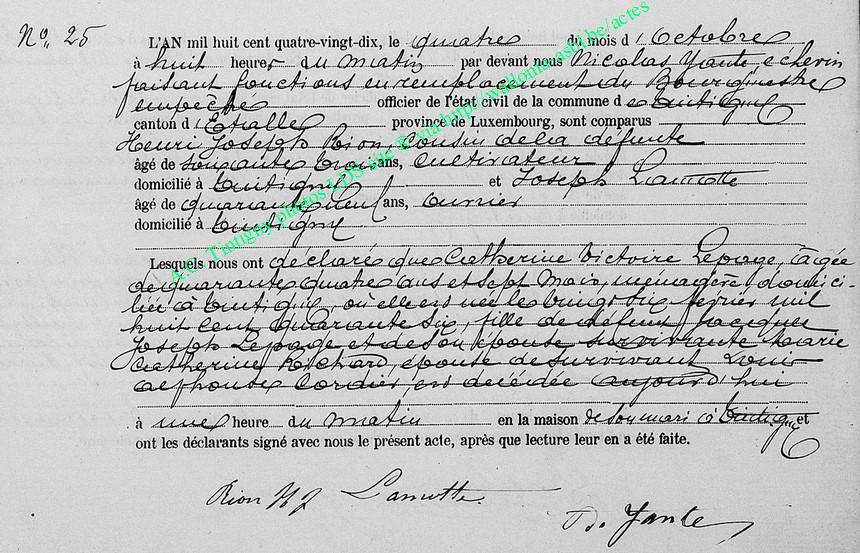 No. 25
L'AN mil huit cent quatre-vingt-dix, le quatre du mois d'Octobre
à huit heures du matin par devant nous Nicolas Yante, échevin
faisant fonctions en remplacement du Bourgmestre
empêché officier de l'état civil de la commune de Tintigny
canton d'Etalle province de Luxembourg, sont comparus
Henri Joseph Rion, Cousin de la défunte
âgé de soixante trois ans, Cultivateur
domicilié à Tintigny et Joseph Lamotte
âgé de quarante neuf ans, ouvrier
domicilié à Tintigny
Lesquels nous ont déclaré que Catherine Victoire Lepage, âgée
de quarante quatre ans et sept Mois, ménagère, domici-
liée à Tintigny, où elle est née le vingt six février mil
huit cent quarante six, fille de défunt Jacques
Joseph Lepage et de son épouse survivante Marie
Catherine Richard, épouse de survivant Louis
Alphonse Cordier, est décédée aujourd'hui
à une heure du matin en la maison de son mari à Tintigny et
ont les déclarants signé avec nous le présent acte, après que lecture leur en a été faite.
Rion H J Lamotte
Yante
A.C. Tintigny photos LDS site © via http://wallonia.asbl.be/actes